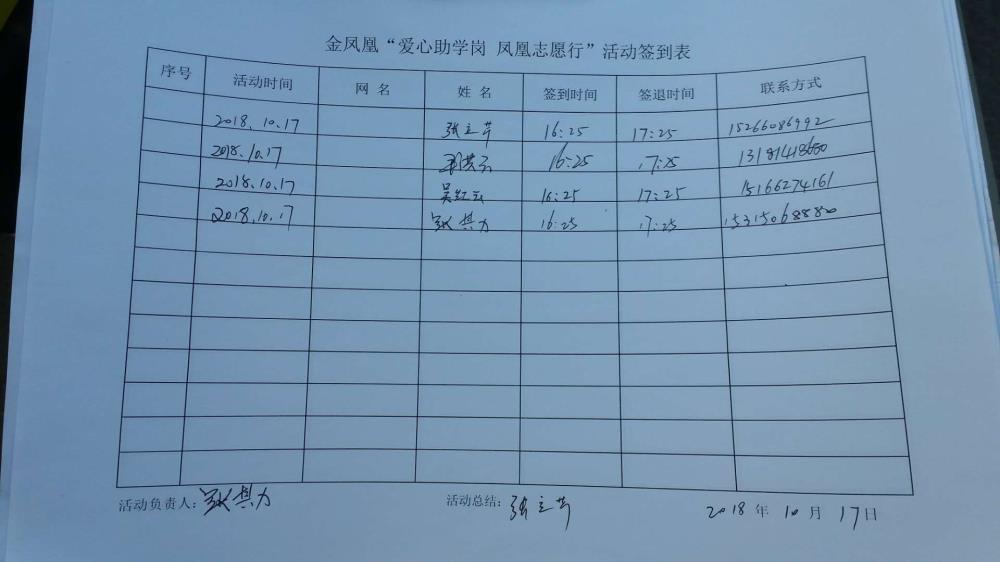 金凤凰“爱心助学岗 凤凰志愿行”活动签到表
序号 活动时间 网 名 姓 名 签到时间 签退时间 联系方式
2018.10.17 张立芹 16:25 17:25 15266086992
2018.10.17 16:25 17:25
2018.10.17 吴红云 16:25 17:25 15166274161
2018.10.17 其力 16:25 17:25
活动负责人： 其力 活动总结： 张立芹 2018 年 10 月 17 日